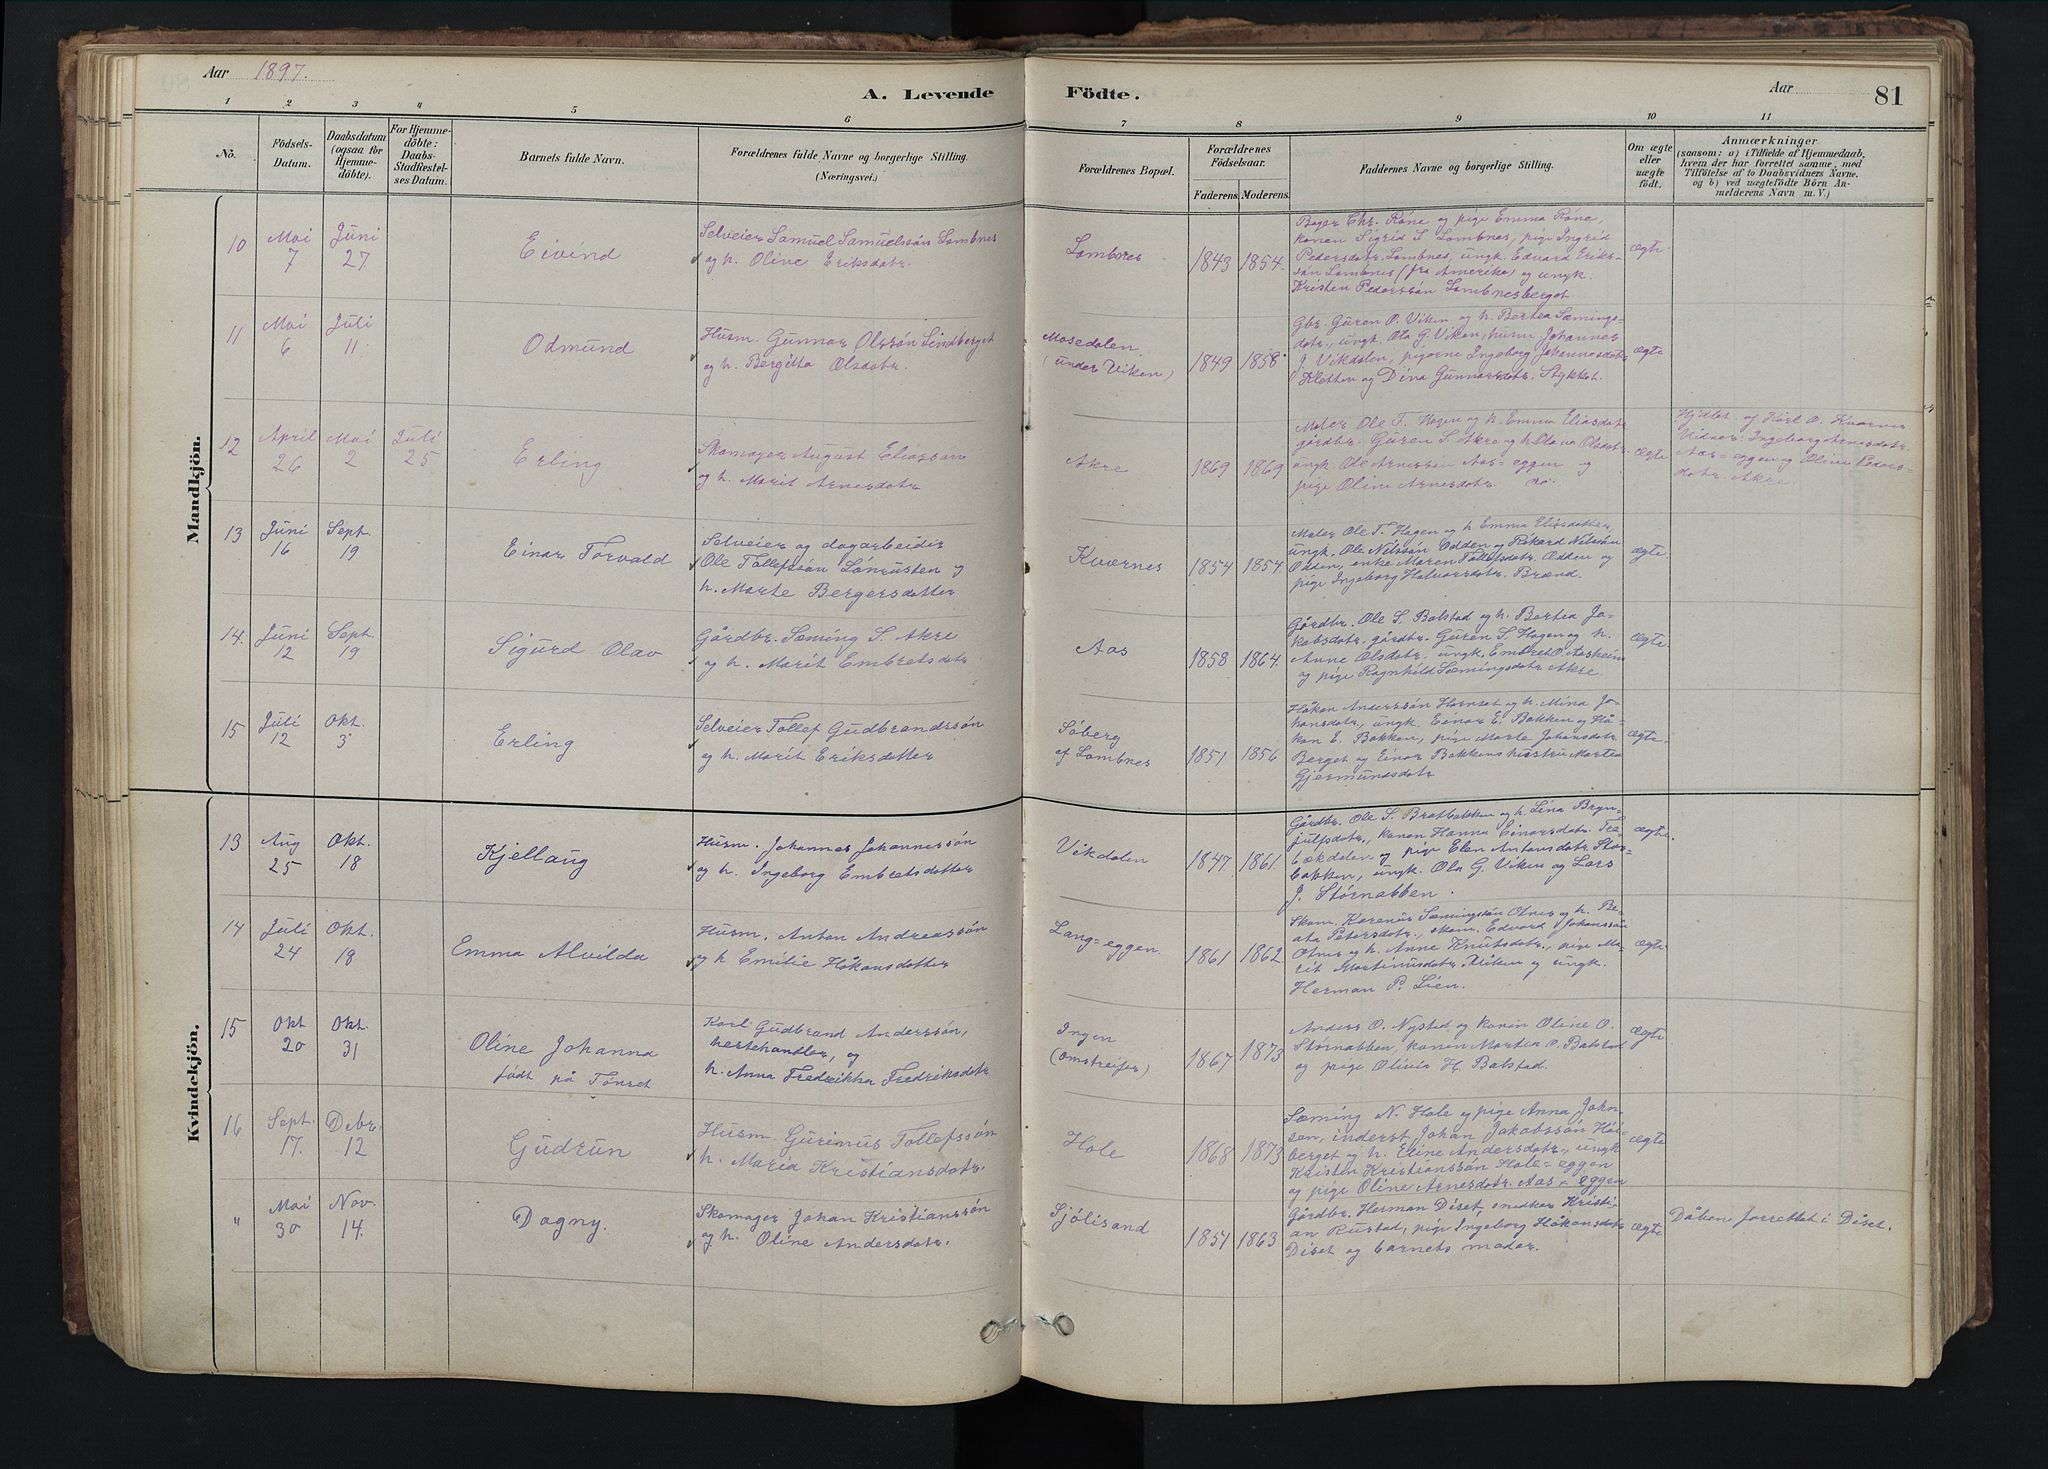 Aar 1897.
A. Levende Födte.
Aar
81
1 2 3 4 5 6 7 8 9 10 11
No.
Födsels-Datum.
Daabsdatum (ogsaa for Hjemmedöbte).
For Hjemmedöbte: Daabs-Stadfæstelses Datum.
Barnets fulde Navn.
Forældrenes fulde Navne og borgerlige Stilling.
(Næringsvei.)
Forældrenes Bopæl.
Forældrenes Födselsaar.
Faderens. Moderens.
Faddernes Navne og borgerlige Stilling.
Om ægte eller uægte födt.
Anmærkninger
(saasom: a) i Tilfælde af Hjemmedaab,
hvem der har forrettet samme, med
Tilföielse af to Daabsvidners Navne.
og b) ved uægtefödte Börn Anmelderens Navn m. V.)
Mandkjön.
10 Mai 7 Juni 27.
Eivind
Selveier Samuel Samuelsön Lombnes
og h. Oline Eriksdatr.
Lombnes
1843 1854.
Bager Chr. Röne og pige Emma Röne,
konen Sigrid S Lombnes, pige Ingrid
Pedersdatr. Lombnes, ungk. Edvard Eriks-
sön Lombnes (fra Amerika) og ungk.
Kristen Pederssön Lombnesberget
ægte.
11 Mai 6 Juli 11.
Odmund
Husm. Gunnar Olssön Sindberget
og h. Bergitta Olsdatr.
Mosedalen
(under Viken)
1849 1858
Gbr. Guren O. Viken og h. Bertea Sæmings-
datr., ungk. Ola G. Viken, husm Johannes
J. Vikdalen, pigerne Ingeborg Johannesdatr
Kletten og Dina Gunnarsdatr. Stykket.
ægte
12 April 26 Mai 2 Juli 25
Erling
Skomager August Eliassön
og h. Marit Arnesdatr
Akre
1869 1869
Maler Ole T. Hagen og h. Emma Eliasdatr
gårdbr. Guren S. Akre og h. Olava Olsdatr.
ungk. Ole Arnessön Aas-eggen og
pige Oline Arnesdatr. do.
ægte
Hjdbt. af Karl O. Kvernes
Vidner: Ingeborg Arnesdatr.
Aas-eggen og Oline Peders-
datr. Akre.
13 Juni 16 Sept. 19
Einar Torvald
Selveier og dagarbeider
Ole Tollefssön Lonrusten og
h. Marte Bergersdatter
Kvernes
1854 1854.
Maler Ole T. Hagen og h Emma Eliasdatter,
ungk. Ole Nilssön Odden og Rikard Nilssön
Odden, enke Maren Tollefsdatr. Odden og
pige Ingeborg Halvorsdatr. Brænd.
ægte
14. Juni 12 Sept. 19
Sigurd Olav
Gårdbr. Sæming S. Akre
og h. Marit Embretsdatr
Aas
1858 1864.
Gårdbr. Ole S. Balstad og h. Bertea Ja-
kobsdatr., gårdbr. Guren S. Hagen og h.
Anne Olsdatr. ungk. Embret O. Aasheim
og pige Ragnhild Sæmingsdatr Akre.
ægte.
15 Juli 12 Okt. 3
Erling
Selveier Tollef Gudbrandssön
og h. Marit Eriksdatter
Söberg
af Lombnes
1851 1856
Håkon Anderssön Hornset og h. Mina Jo-
hansdatr., ungk. Einar E. Bakken og Hå-
kon E. Bakken, pige Marte Johansdatr
Berget og Einar Bakkens hustru Martea
Gjermundsdatr
ægte.
Kvindekjön.
13 Aug 25 Okt. 18
Kjellaug
Husm. Johannes Johannessön
og h. Ingeborg Embretsdatter
Vikdalen
1847. 1861.
Gårdbr. Ole S. Bratbakken og h. Lina Bryn-
julfsdatr., konen Hanna Einarsdatr.
og pige Elen Antonsdatr.
bakken, ungk. Ola G. Viken og Lars
J. Störnabben.
ægte.
14 Juli 24 Okt. 18
Emma Alvilda
Husm. Anton Andreassön
og h Emilie Håkonsdatter
Lang-eggen.
1861 1862.
Skom. Karenus Sæmingssön Otnes og h. Be-
ata Petersdatr., skom. Edvard Johanssön
Otnes og h. Anne Knutsdatr., pige Ma-
rit Martinusdatr. Viken og ungk.
Herman P. Lien.
ægte
15 Okt 20 Okt. 31
Oline Johanna
födt på Tönset
Karl Gudbrand Anderssön,
hestehandler, og
h. Anna Fredrikka Fredriksdatr.
Ingen
(omstreifer)
1867 1873
Anders O. Nysted og konen Oline O.
Störnabben, konen Martea O. Balstad
og pige Olivia H. Balstad.
ægte
16 Sept. 17. Debr. 12
Gudrun
Husm. Gurinus Tollefssön
h. Maria Kristiansdatr.
Hole
1868 1873
Sæming N. Hole og pige Anna John-
sen, inderst Johan Jakobssön Hår-
berget og h. Eline Andersdatr., ungk
Kristen Kristianssön Hole-eggen
og pige Oline Arnesdatr. Aas-eggen
ægte
" Mai 30 Nov. 14.
Dagny.
Skomager Johan Kristianssön
og h. Oline Andersdatr.
Sjölisand
1851 1863
Gårdbr. Herman Diset, snedker Kristi-
an Rustad, pige Ingeborg Håkonsdatr
Diset og barnets moder.
ægte
Dåben forrettet i Diset.